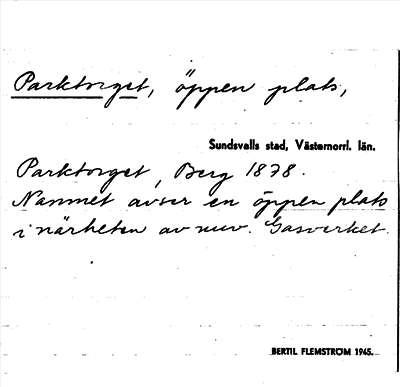 Parktorget, öppen plats,
Sundsvalls stad, Västernorrl. län.
Parktorget, Berg 1878.
Namnet avser en öppen plats
i närheten av nuv. Gasverket.
BERTIL FLEMSTRÖM 1945.